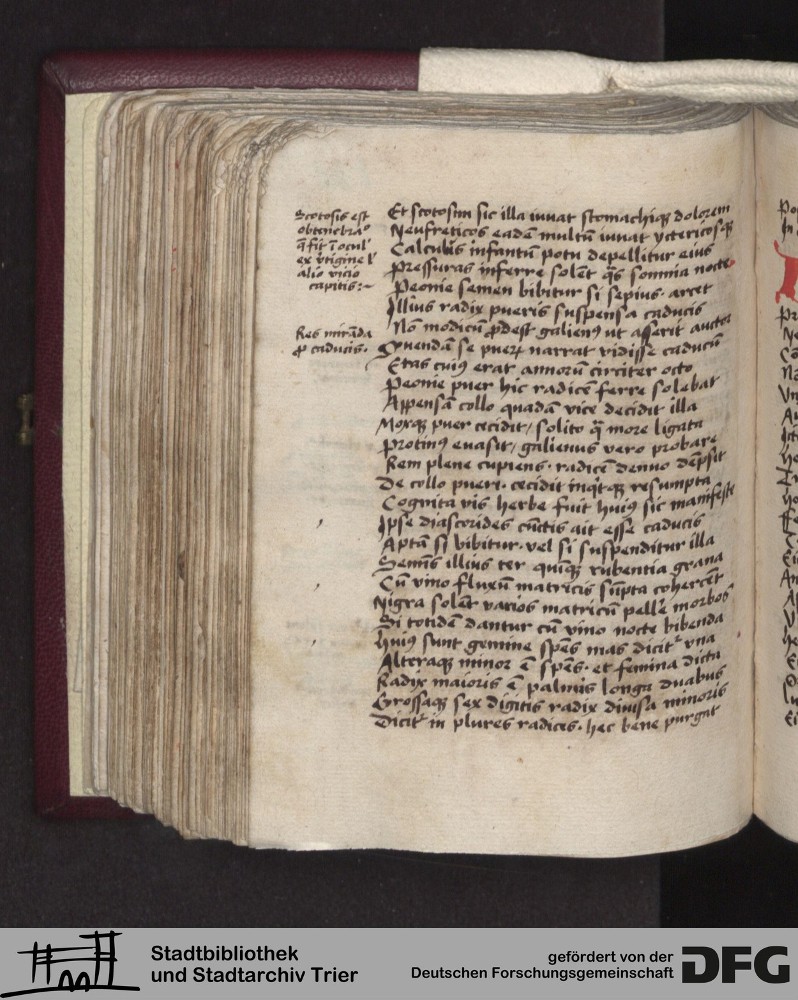 Scotosis est
obtenebra°
q̄ fit ī ocul'
ex v̄tigine l'
alio vicio
capitis:~
Res mirāda
ꝓ caducis.
Et scotosim sic illa iuuat stomachiqꝫ dolorem
Neufreticos eadē multū iuuat yctericosqꝫ
Calculus infantū potu depellitur eius
Pressuras inferre solēt q̄s somnia nocte
Peonie semen bibitur si sepius arcet
Illius radix pueris suspensa caducis
Nō modicū ꝓdest galienꝰ ut asserit auctor
Quendā se pueꝝ narrat vidisse caducū
Etas cuiꝰ erat annorū circiter octo
Peonie puer hic radicē ferre solebat
Appensā collo quadā vice decidit illa
Moxqꝫ puer cecidit / solito q̄ more ligata
Protinꝰ euasit / galienus vero probare
Rem plene cupiens . radicē denuo dēpsit
De collo pueri . cecidit resumpta
Cognita vis herbe fuit huiꝰ sic manifeste
Ipse diascorides cūctis ait esse caducis
Aptā si bibitur . vel si suspenditur illa
Semīs illius ter quīqꝫ rubentia grana
Cū vino fluxū matricis sūpta cohercēt
Nigra solēt varios matricū pell'e morbos
Si totidē dantur cū vino nocte bibenda
Huiꝰ sunt gemine spēs mas dicit' vna
Alteraqꝫ minor ē spēs . et femina dicta
Radix maioris ē palmis longa duabus
Grossaqꝫ sex digitis radix diuisa minoris
Dicit' in plures radices . hec bene purgat
Stadtbibliothek
und Stadtarchiv Trier
gefördert von der
Deutschen Forschungsgemeinschaft
DFG